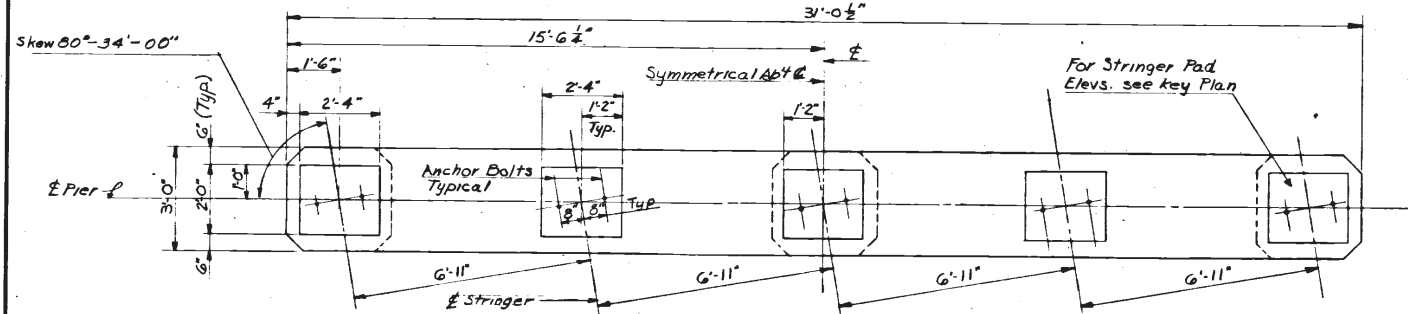 31'-0 1/2"
Skew 80°-34'-00"
15'-6 1/4"
℄
1'-6"
Symmetrical Ab't ℄
For Stringer Pad
Elevs. see key Plan
2'-4"
4"
2'-4"
1'-2"
Typ.
1'-2"
6" (Typ)
Anchor Bolts
Typical
1'-0"
2'-0"
3'-0"
℄ Pier
8"
8"
Typ
6"
6'-11"
6'-11"
6'-11"
6'-11"
℄ Stringer